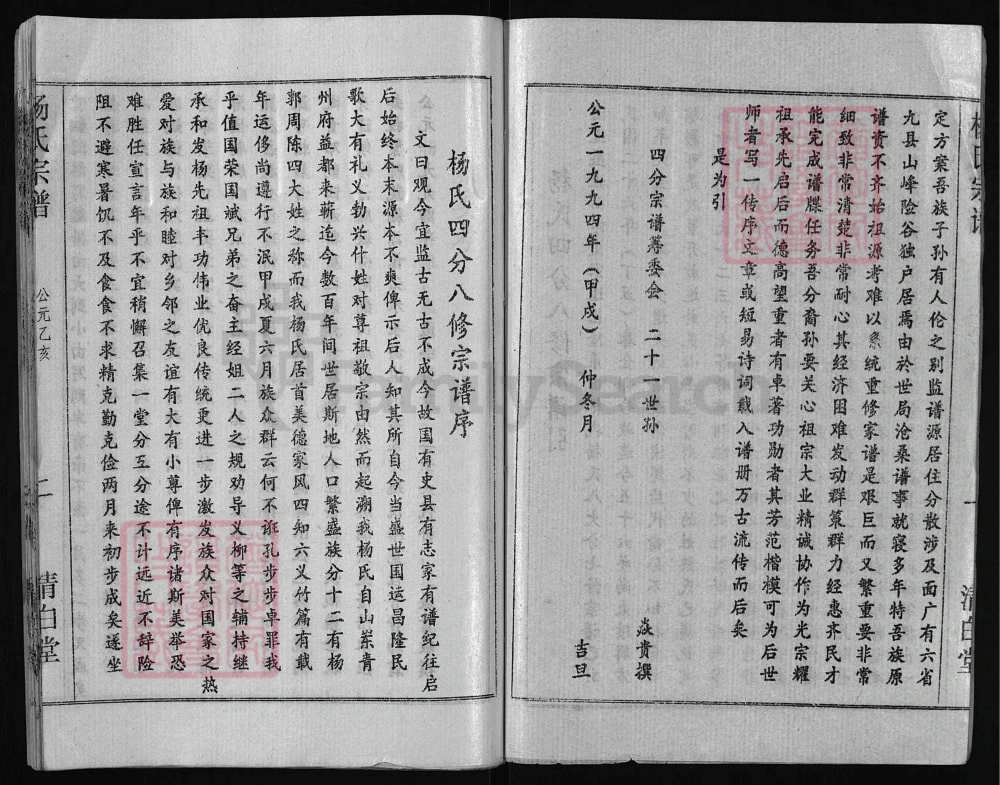 定方案吾族子孙有人伦之别监谱源居住分散涉及面广有六省
九县山峰险谷独户居焉由於世局沧桑谱事就寝多年特吾族原
谱资不齐始祖源考难以系统重修家谱是艰巨而又繁重要非常
细致非常清楚非常耐心其经济困难发动群策群力经惠齐民才
能完成谱牒任务吾分裔孙要关心祖宗大业精诚协作为光宗耀
祖承先启后而德高望重者有卓著功勋者其芳范楷模可为后世
师者写一传序文章或短易诗词载入谱册万古流传而后矣
是为引
四分宗谱筹委会 二十一世孙 焱贵撰
公元一九九四年(甲戌) 仲冬月 吉旦
一
清白堂
杨氏四分八修宗谱序
文曰观今宜监古无古不成今故国有史县有志家有谱纪往启
后始终本末源本不爽俾示后人知其所自今当盛世国运昌隆民
歌大有礼义勃兴什姓对尊祖敬宗由然而起溯我杨氏自山东青
州府益都来蕲迄今数百年间世居斯地人口繁盛族分十二有杨
郭周陈四大姓之称而我杨氏居首美德家风四知六义竹篇有载
年运侈尚遵行不泯甲戌夏六月族众群云何不诳孔步步卓罪我
乎值国荣国斌兄弟之奋主经姐二人之规劝导义柳等之辅持继
承和发杨先祖丰功伟业优良传统更进一步激发族众对国家之热
爱对族与族和睦对乡邻之友谊有大有小尊俾有序诸斯美举恐
难胜任宣言年乎不宜稍懈召集一堂分互分途不计远近不辞险
阻不避寒暑饥不及食食不求精克勤克俭两月来初步成矣遂坐
杨氏宗谱
公元乙亥
二
清白堂